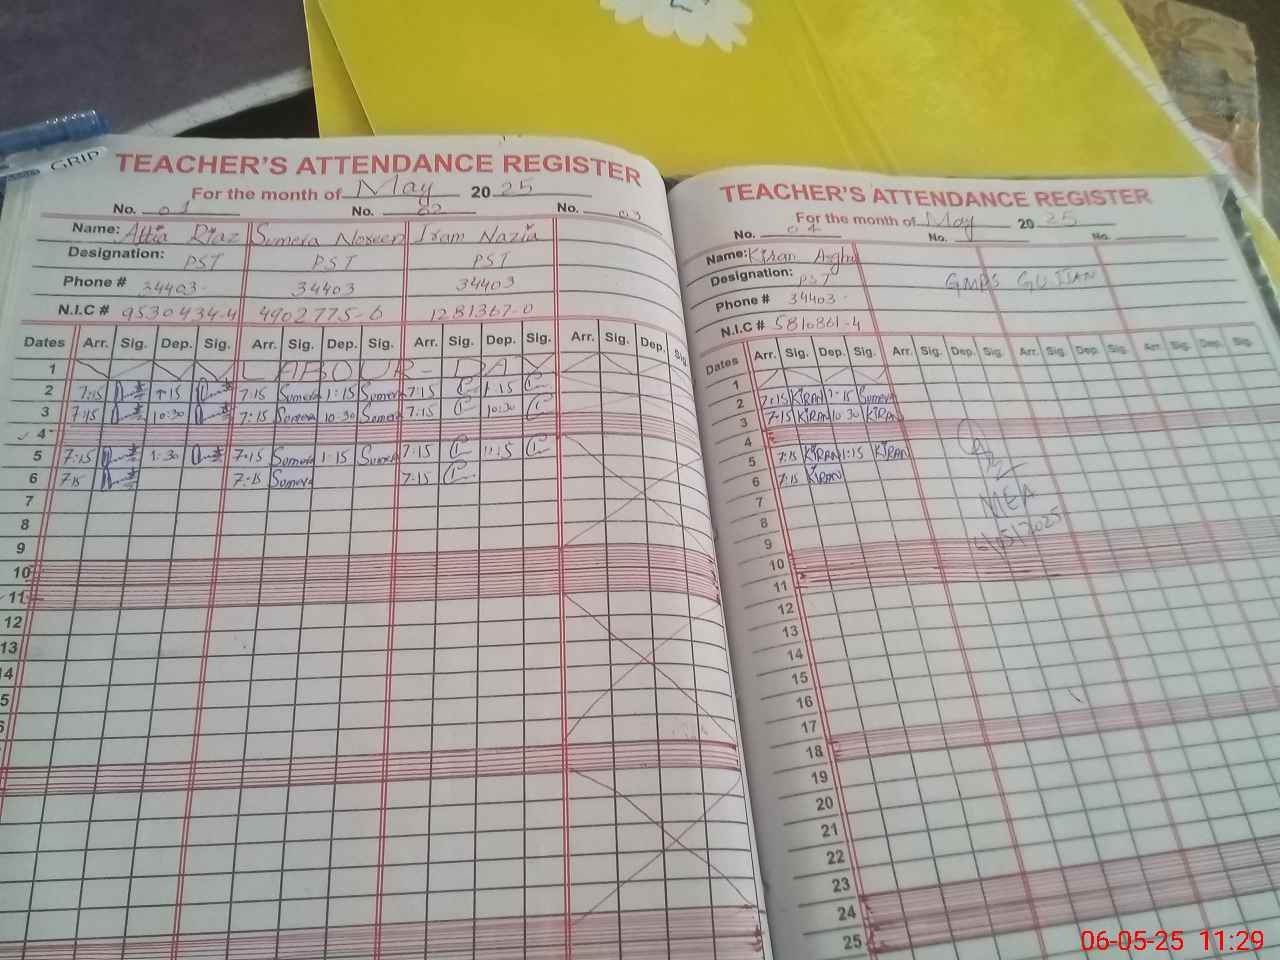 GRIP
TEACHER'S ATTENDANCE REGISTER
For the month of May 2025
No. 01 No. 02 No. 03
Name: Attia Riaz Sumera Noreen Iram Nazia
Designation: PST PST PST
Phone # 34403- 34403 34403
N.I.C # 9530434-4 4902775-6 1281367-0
Dates Arr. Sig. Dep. Sig. Arr. Sig. Dep. Sig. Arr. Sig. Dep. Sig. Arr. Sig. Dep. Sig.
1 LABOUR-DAY
2 7:15 1:15 7:15 Sumera 1:15 Sumera 7:15 1:15
3 7:15 10:30 7:15 Sumera 10:30 Sumera 7:15 10:30
4
5 7:15 1:30 7:15 Sumera 1:15 Sumera 7:15 1:15
6 7:15 7:15 Sumera 7:15
7
8
9
10
11
12
13
14
5
6
TEACHER'S ATTENDANCE REGISTER
For the month of May 2025
No. 04 No. No.
Name: Kiran
Designation: PST GMPS GUJJAN
Phone # 34403-
N.I.C # 5810861-4
Dates Arr. Sig. Dep. Sig. Arr. Sig. Dep. Sig. Arr. Sig. Dep. Sig. Arr. Sig. Dep. Sig.
1
2 7:15 KIRAN 1:15 Sumera
3 7:15 KIRAN 10:30 KIRAN
4
5 7:15 KIRAN 1:15 KIRAN
6 7:15 KIRAN
7 MEA
8 6/5/2025
9
10
11
12
13
14
15
16
17
18
19
20
21
22
23
24
25
06-05-25 11:29